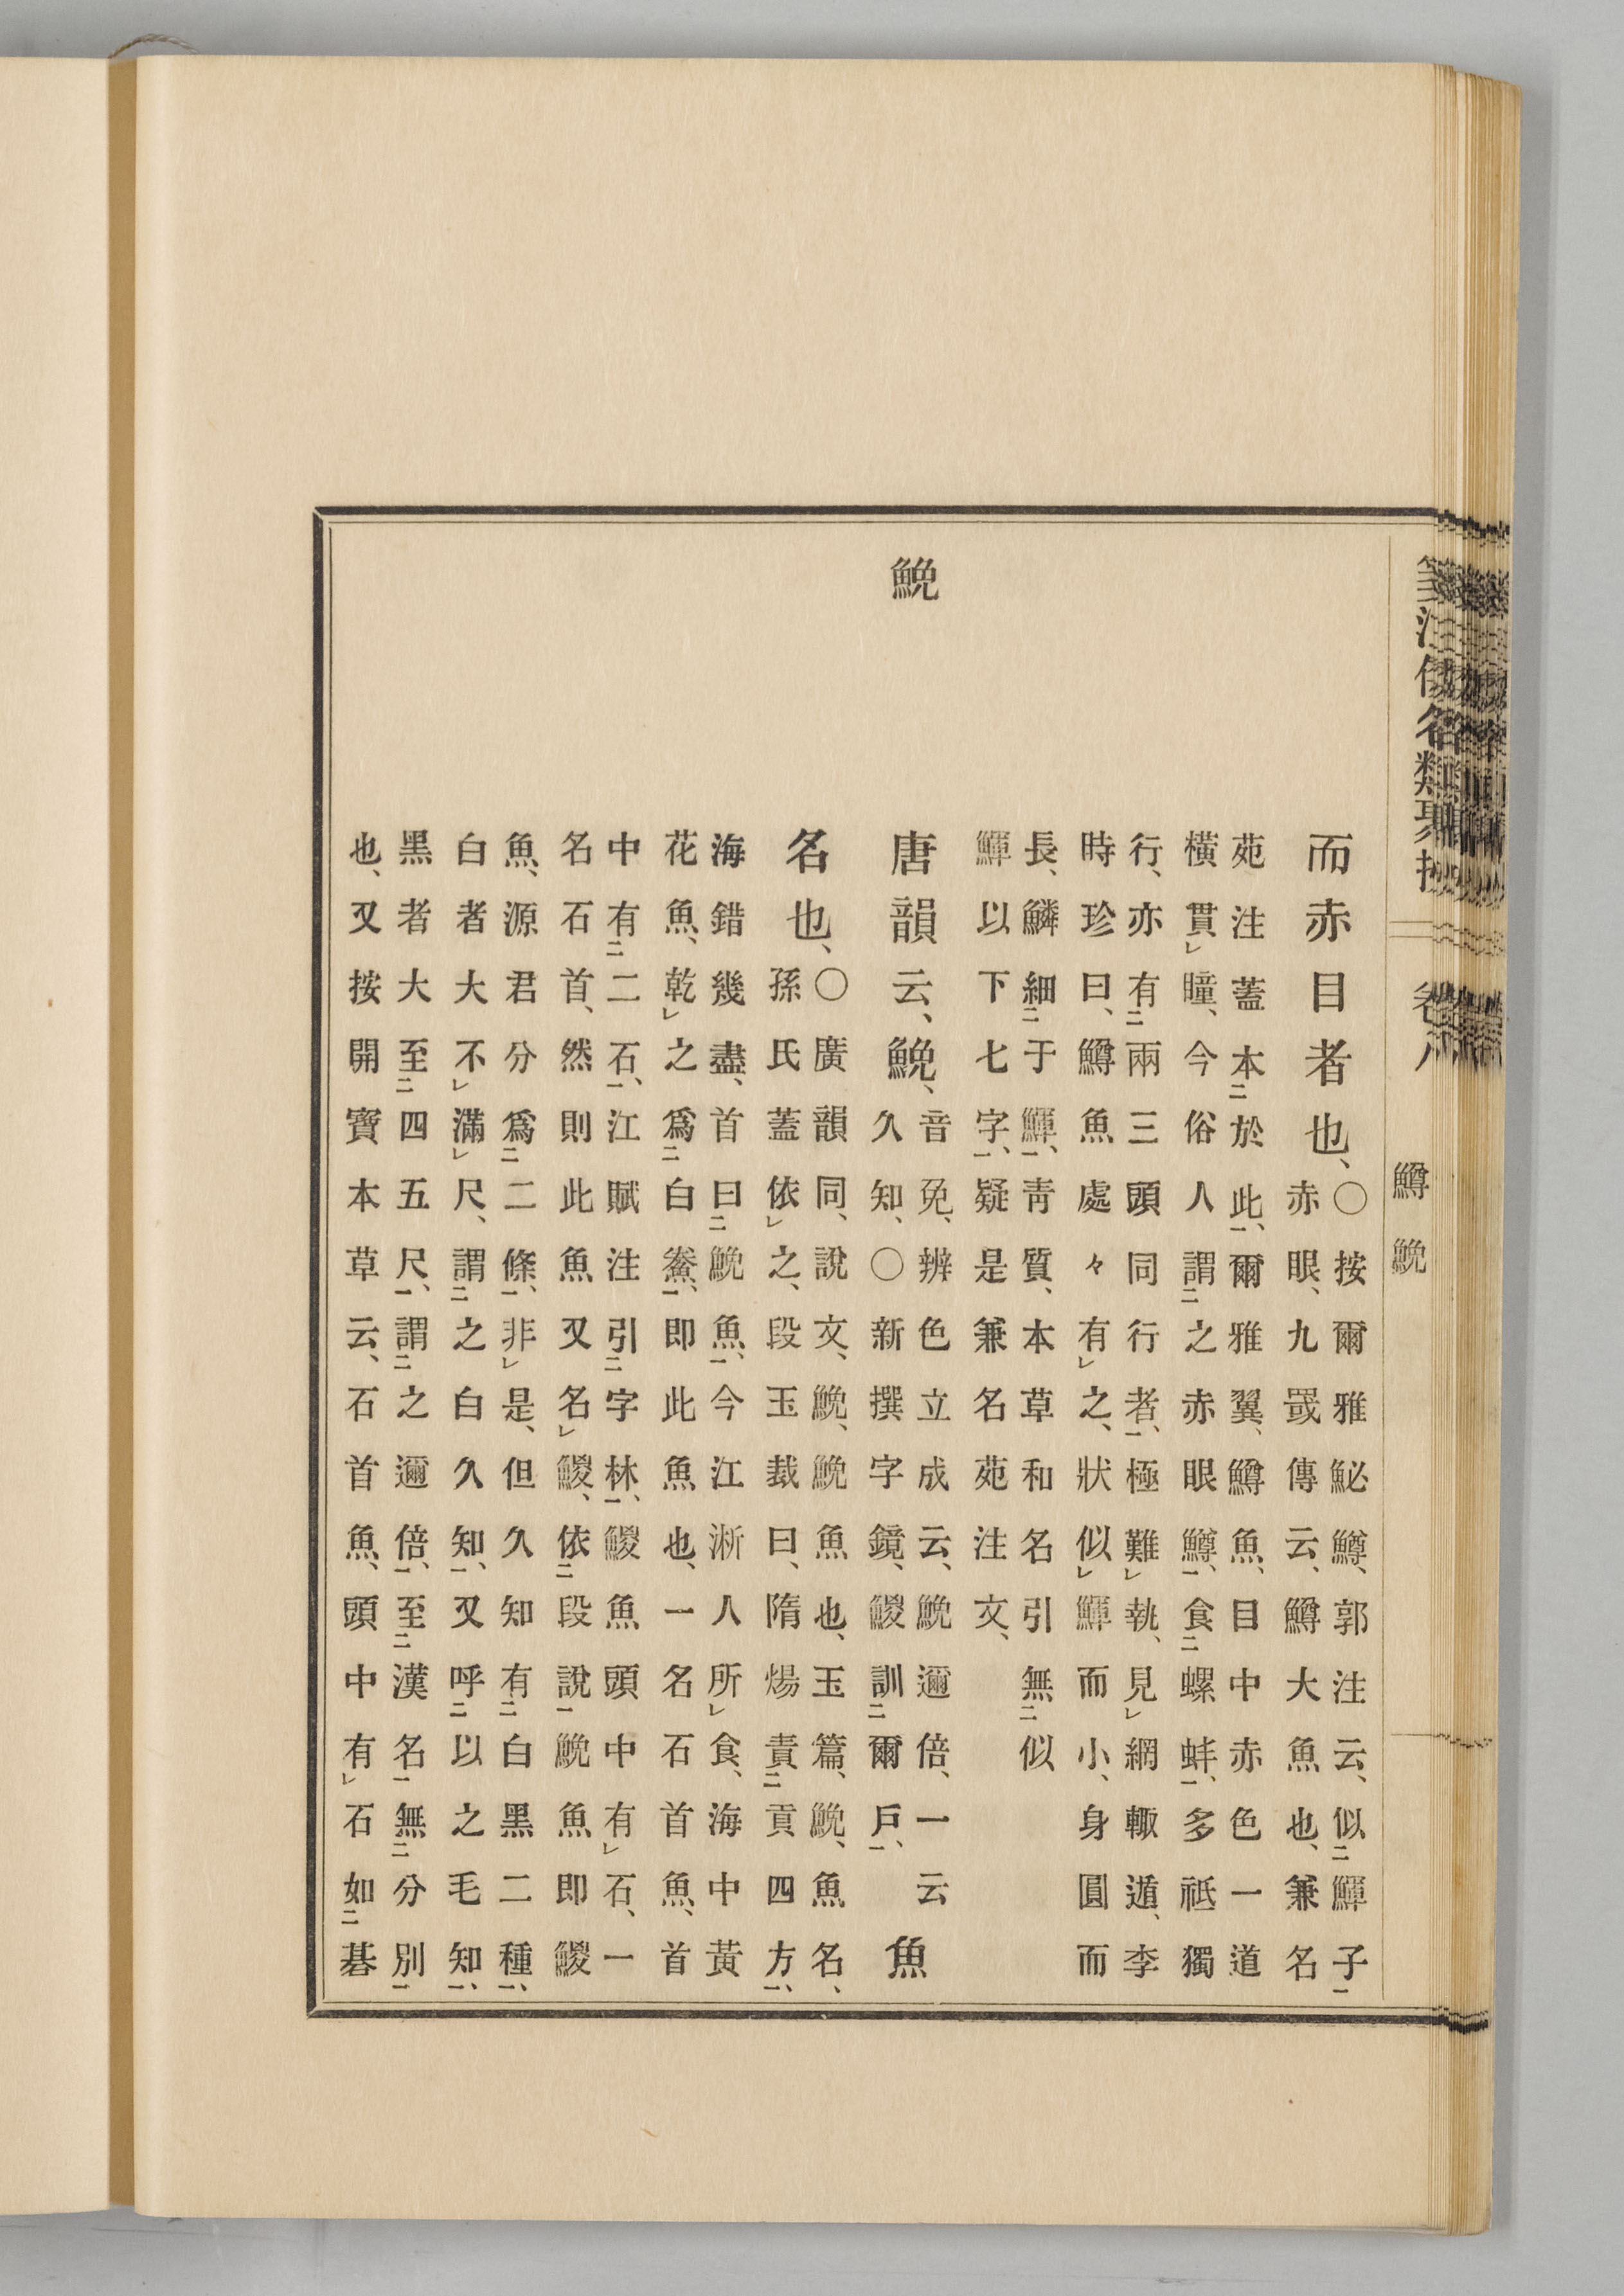 箋注倭名類聚抄 卷八 鱒 鮸
而赤目者也、
○按爾雅鮅鱒、郭注云、似㆓鯶子㆒
赤眼、九罭傳云、鱒大魚也、兼名
苑注蓋本㆓於此㆒、爾雅翼、鱒魚、目中赤色一道
橫貫㆑瞳、今俗人謂㆓之赤眼鱒㆒、食㆓螺蚌㆒、多祗獨
行、亦有㆓兩三頭同行者㆒、極難㆑執、見㆑網輙遁、李
時珍曰、鱒魚處々有㆑之、狀似㆑鯶而小、身圓而
長、鱗細㆓于鯶㆒、青質、本草和名引無㆓似
鯶以下七字㆒、疑是兼名苑注文、
鮸
唐韻云、鮸、
音免、辨色立成云、鮸邇倍、一云
久知、○新撰字鏡、鯼訓㆓爾戶㆒、
魚
名也、
○廣韻同、說文、鮸、鮸魚也、玉篇、鮸、魚名、
孫氏蓋依㆑之、段玉裁曰、隋煬責㆓貢四方㆒、
海錯幾盡、首曰㆓鮸魚㆒、今江淅人所㆑食、海中黃
花魚、乾㆑之爲㆓白鯗㆒、即此魚也、一名石首魚、首
中有㆓二石㆒、江賦注引㆓字林㆒、鯼魚頭中有㆑石、一
名石首、然則此魚又名㆑鯼、依㆓段說㆒鮸魚即鯼
魚、源君分爲㆓二條㆒、非㆑是、但久知有㆓白黑二種㆒、
白者大不㆑滿㆑尺、謂㆓之白久知㆒、又呼㆓以之毛知㆒、
黑者大至㆓四五尺㆒、謂㆓之邇倍㆒、至㆓漢名㆒無㆓分別㆒
也、又按開寶本草云、石首魚、頭中有㆑石如㆓碁